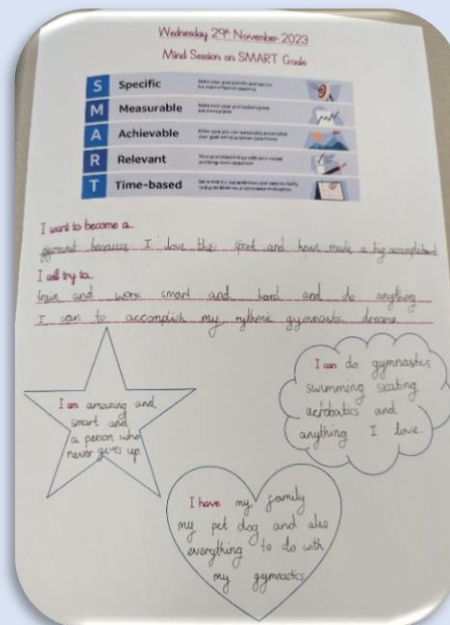 Wednesday 29th November 2023
Mind Session on SMART Goals
S Specific
M Measurable
A Achievable
R Relevant
T Time-based
I want to become a..
gymnast because I love the sport and have made a big
I will try to..
train and work smart and hard and do anything
I can to accomplish my rythmic gymnastic dreams
I am amazing and
smart and
a person who
never gives up.
I can do gymnastics
swimming skating
acrobatics and
anything I love.
I have my family
my pet dog and also
everything to do with
my